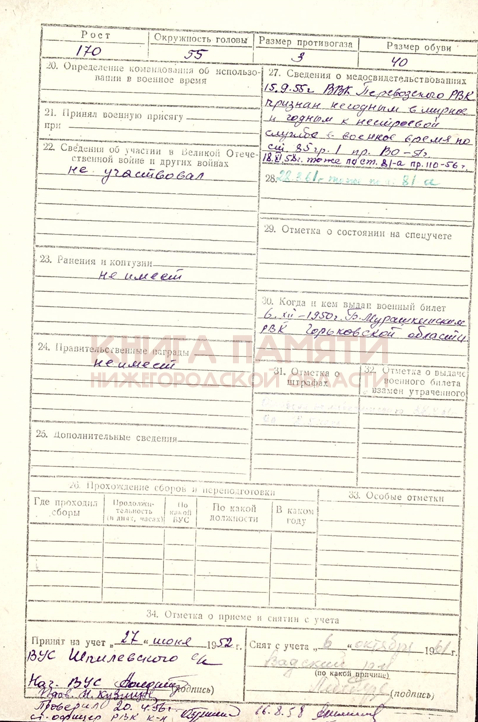 Рост Окружность головы Размер противогаза Размер обуви
170 55 3 40
20. Определение командования об использовании в военное время
21. Принял военную присягу
при
22. Сведения об участии в Великой Отечественной войне и других войнах
не участвовал
23. Ранения и контузии
не имеет
24. Правительственные награды
не имеет
25. Дополнительные сведения
27. Сведения о медосвидетельствованиях
15.9.55г. ВВК Перевозского РВК
признан негодным в мирное
и годным к нестроевой
службе в военное время по
ст 85 гр. 1 пр. ВО-
тоже по ст. 81-а пр. 110-56г.
28.
29. Отметка о состоянии на спецучете
30. Когда и кем выдан военный билет
6. XII-1950г. Б. Мурашкинским
РВК Горьковской области
КНИГА ПАМЯТИ
НИЖЕГОРОДСКОЙ ОБЛАСТИ
31. Отметка о штрафах
32. Отметка о выдаче военного билета взамен утраченного
26. Прохождение сборов и переподготовки
33. Особые отметки
Где проходил сборы
Продолжительность (в днях, часах)
По какой ВУС
По какой должности
В каком году
34. Отметка о приеме и снятии с учета
Принят на учет „27„ июня 1952г.
ВУС Шпилевского с/с
Нач. ВУС
(подпись)
Проверил 20.4.56г.
ст. офицер РВК к-н
16.8.58
Снят с учета „6„ октября 1961г.
Вадский р-н
(по какой причине)
(подпись)